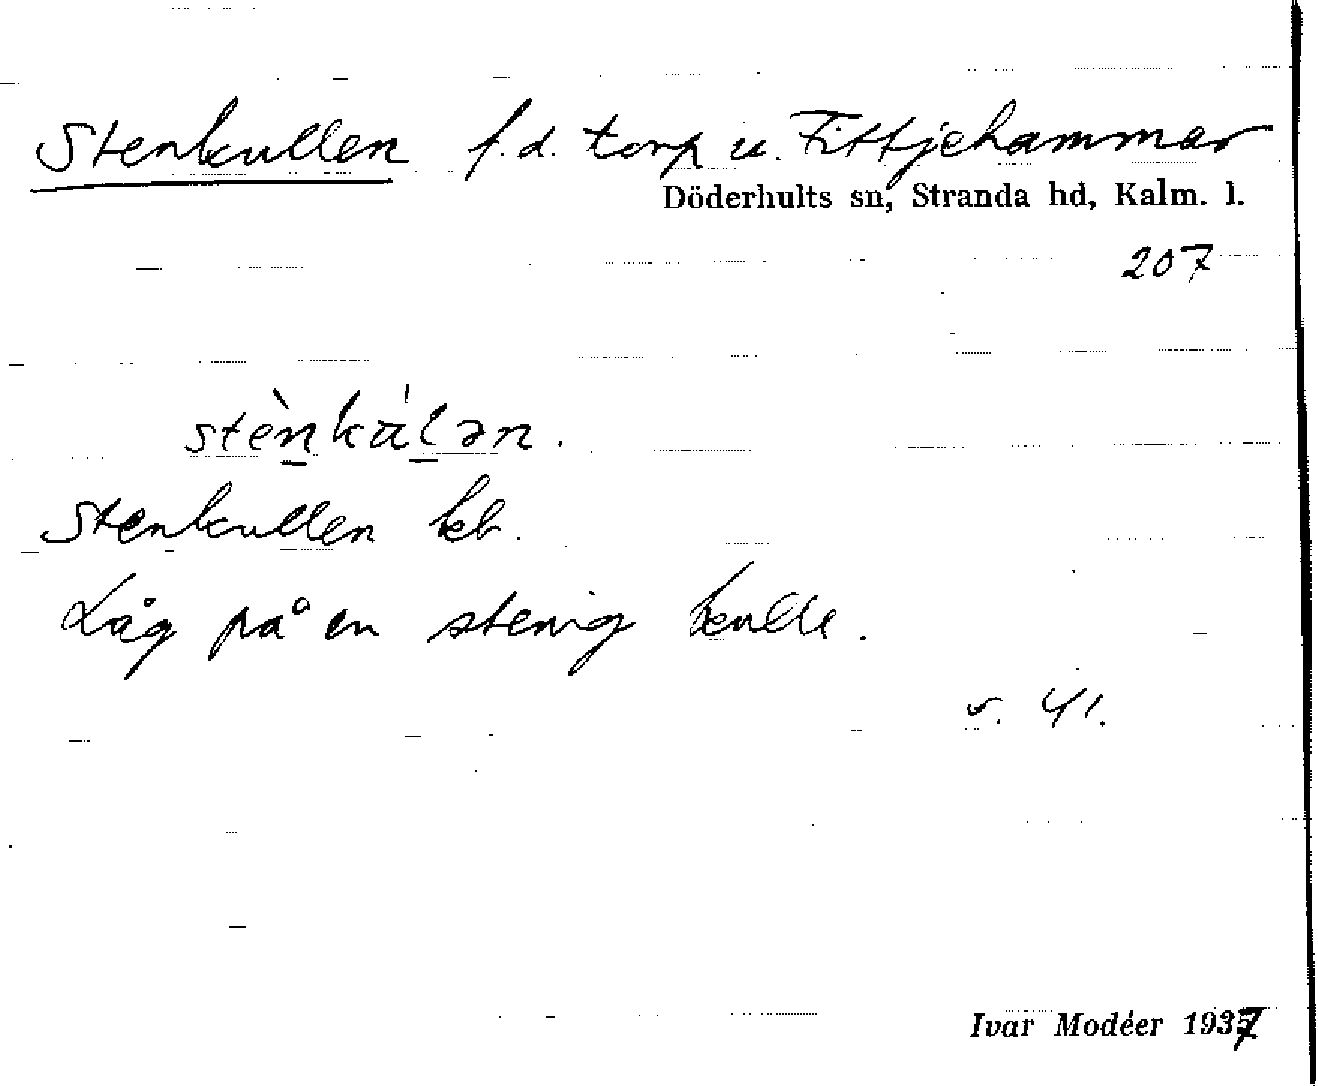 Stenkullen f.d. torp u. Fittjehammar
Döderhults sn, Stranda hd, Kalm. l.
207
stènkùlən.
Stenkullen kb.
Låg på en stenig kulle.
v. 41.
Ivar Modéer 1937